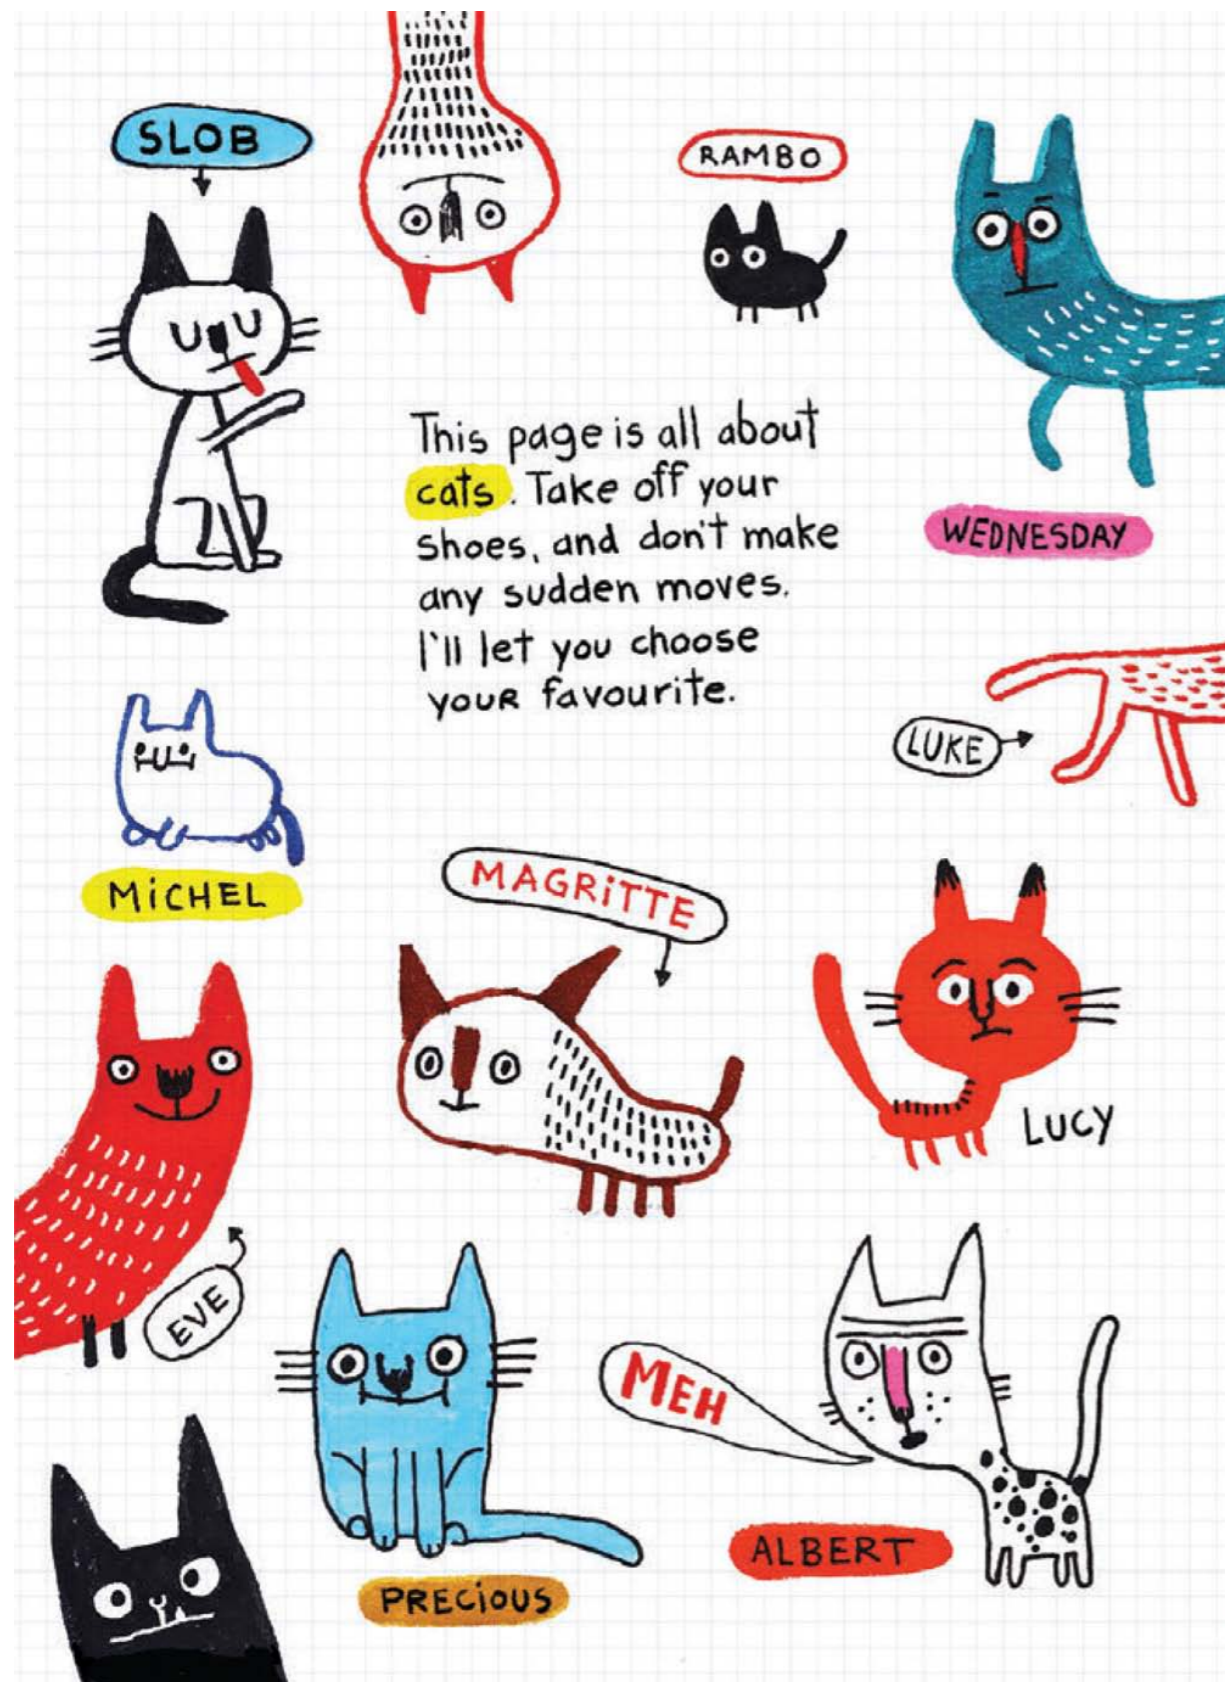 SLOB
RAMBO
This page is all about
cats. Take off your
shoes, and don't make
any sudden moves.
I'll let you choose
YOUR favourite.
WEDNESDAY
LUKE
MiCHEL
MAGRiTTE
LUCY
EVE
MEH
ALBERT
PRECiOUS